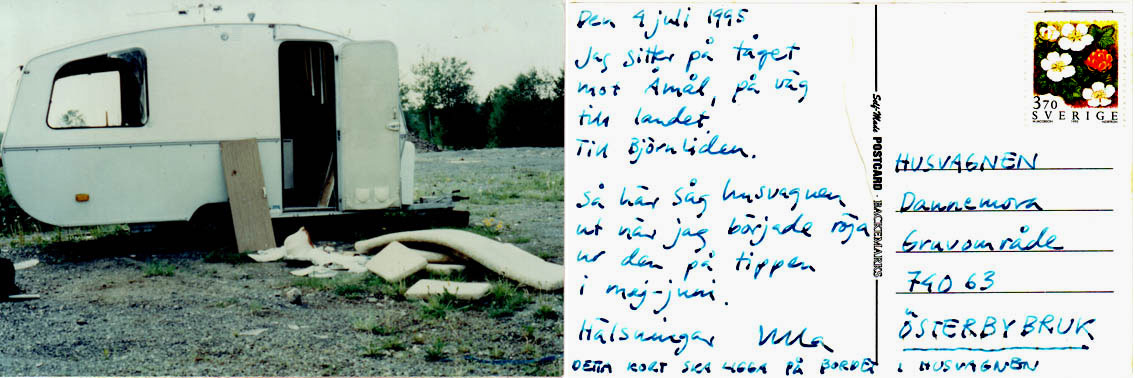 Den 4 juli 1995
Jag sitter på tåget
mot Åmål, på väg
till landet.
Till Björnliden.
Så här såg husvagnen
ut när jag började röja
ur den på tippen
i maj-juni.
Hälsningar Ulla
DETTA KORT SKA LIGGA PÅ BORDET I HUSVAGNEN
Self-Made POSTCARD · BACKEMARKS
3.70
SVERIGE
HUSVAGNEN
Dannemora
Gruvområde
740 63
ÖSTERBYBRUK